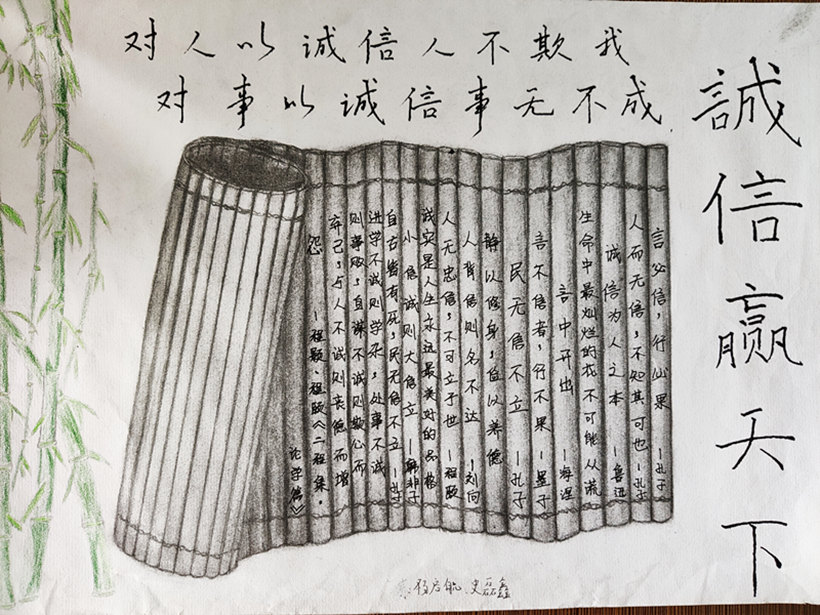 对人以诚信人不欺我
对事以诚信事无不成
誠信赢天下
言必信，行必果 -孔子
人而无信，不知其可也 -孔子
诚信为人之本 -鲁迅
生命中最灿烂的我不可能从谎
言中开出 -海涅
言不信者，行不果 -墨子
民无信不立 -孔子
静以修身，俭以养德
人背信则名不达 -刘向
人无忠信，不可立于世 -程颐
诚实是人生永远最美好的品格
小信诚则大信立 -韩非子
自古皆有死，民无信不立 -孔子
进学不诚则学杂，处事不诚
则事败，自谋不诚则欺心而
弃己，与人不诚则丧德而增
怨 -程颢、程颐《二程集·
论学篇》
史磊鑫